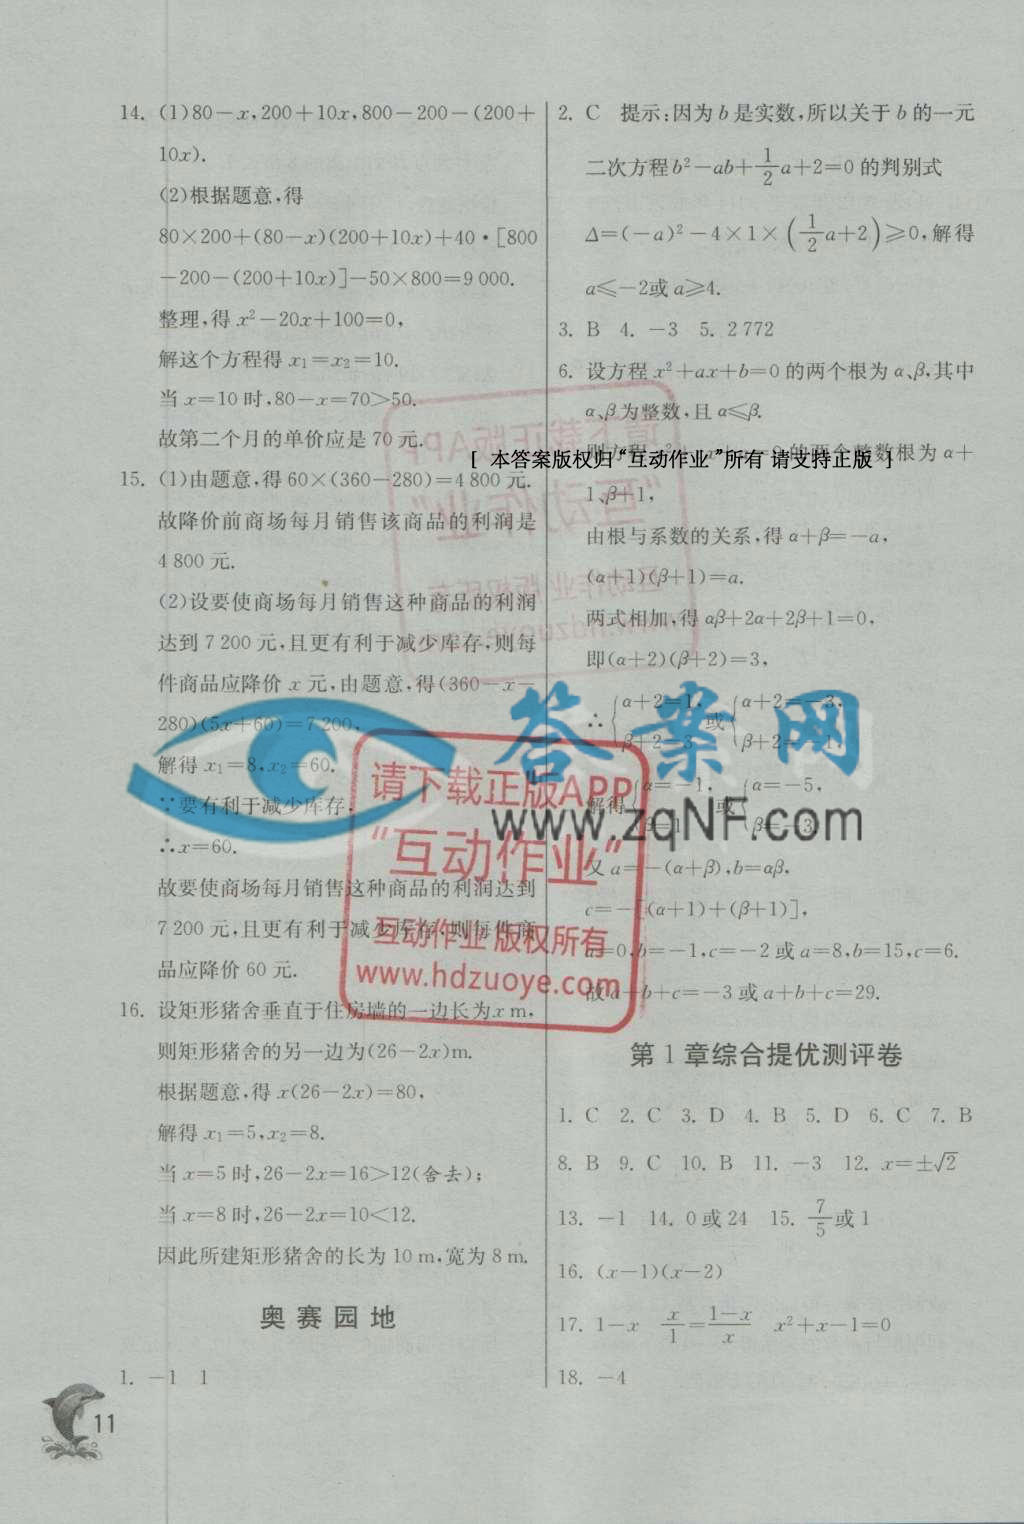 14. (1)80－x,200＋10x,800－200－(200＋
10x).
(2)根据题意,得
80×200＋(80－x)(200＋10x)＋40·[800
－200－(200＋10x)]－50×800＝9 000.
整理,得 x²－20x＋100＝0,
解这个方程得 x₁＝x₂＝10.
当 x＝10 时,80－x＝70＞50.
故第二个月的单价应是 70 元.
15. (1)由题意,得 60×(360－280)＝4 800元.
故降价前商场每月销售该商品的利润是
4 800 元.
(2)设要使商场每月销售这种商品的利润
达到 7 200 元,且更有利于减少库存,则每
件商品应降价 x 元,由题意,得(360－x－
280)(5x＋60)＝7 200,
解得 x₁＝8,x₂＝60.
∵要有利于减少库存,
∴x＝60.
故要使商场每月销售这种商品的利润达到
7 200 元,且更有利于减少库存,则每件商
品应降价 60 元.
16. 设矩形猪舍垂直于住房墙的一边长为x m,
则矩形猪舍的另一边为(26－2x)m.
根据题意,得 x(26－2x)＝80,
解得 x₁＝5,x₂＝8.
当 x＝5 时,26－2x＝16＞12(舍去);
当 x＝8 时,26－2x＝10＜12.
因此所建矩形猪舍的长为 10 m,宽为 8 m.
奥赛园地
1. －1 1
2. C 提示:因为 b 是实数,所以关于 b 的一元
二次方程 b²－ab＋1/2a＋2＝0 的判别式
Δ＝(－a)²－4×1×(1/2a＋2)≥0,解得
a≤－2或 a≥4.
3. B 4. －3 5. 2 772
6. 设方程 x²＋ax＋b＝0 的两个根为 α、β,其中
α、β为整数,且 α≤β.
的两个整数根为 α＋
[ 本答案版权归“互动作业”所有 请支持正版 ]
1、β＋1,
由根与系数的关系,得 α＋β＝－a,
(α＋1)(β＋1)＝a.
两式相加,得 αβ＋2α＋2β＋1＝0,
即(α＋2)(β＋2)＝3,
∴{α＋2＝1, 或{α＋2＝－3,
β＋2＝3 β＋2＝－1.
解得{α＝－1, 或{α＝－5,
β＝1 β＝－3.
又 a＝－(α＋β),b＝αβ,
c＝－[(α＋1)＋(β＋1)],
a＝0,b＝－1,c＝－2 或 a＝8,b＝15,c＝6.
故 a＋b＋c＝－3 或 a＋b＋c＝29.
第 1 章综合提优测评卷
1. C 2. C 3. D 4. B 5. D 6. C 7. B
8. B 9. C 10. B 11. －3 12. x＝±√2
13. －1 14. 0 或 24 15. 7/5 或 1
16. (x－1)(x－2)
17. 1－x x/1＝(1－x)/x x²＋x－1＝0
18. －4
11
答案网
www.zqNF.com
请下载正版APP
“互动作业”
互动作业 版权所有
www.hdzuoye.com